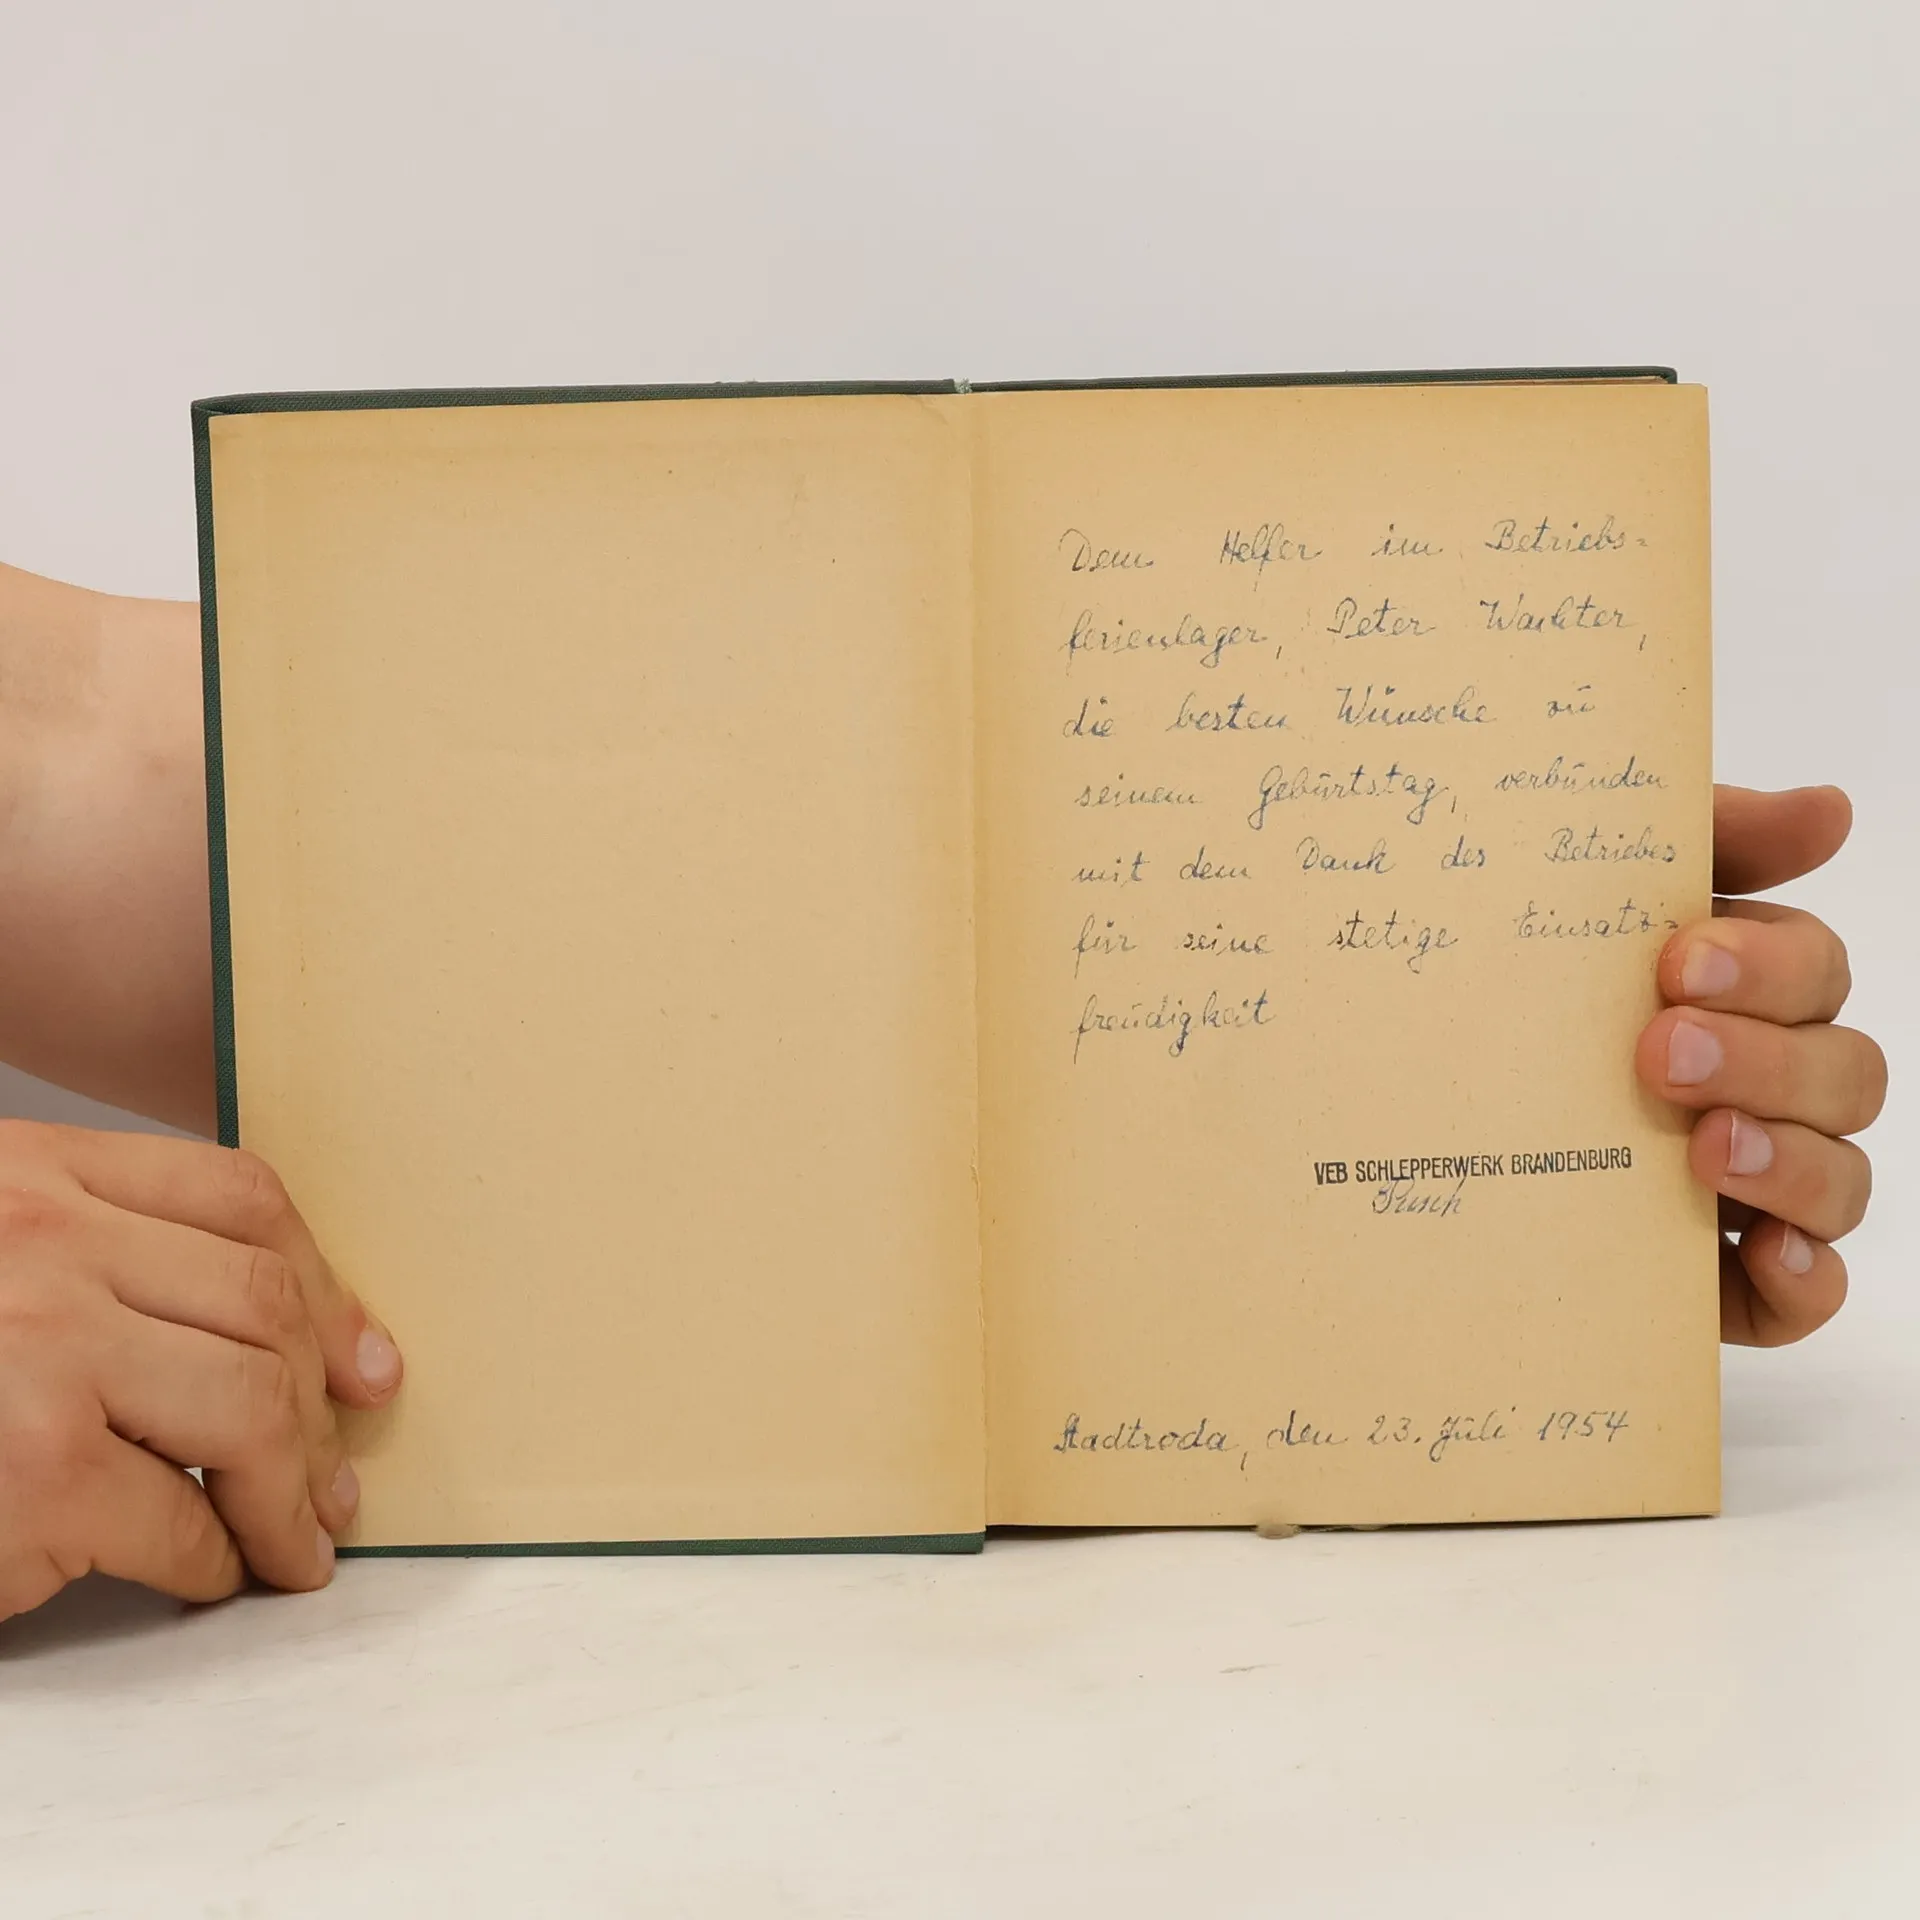 Dem Helfer im Betriebs=
ferienlager, Peter Wachter,
die besten Wünsche zu
seinem Geburtstag, verbunden
mit dem Dank des Betriebes
für seine stetige Einsatz=
freudigkeit
VEB SCHLEPPERWERK BRANDENBURG
Stadtroda, den 23. Juli 1954